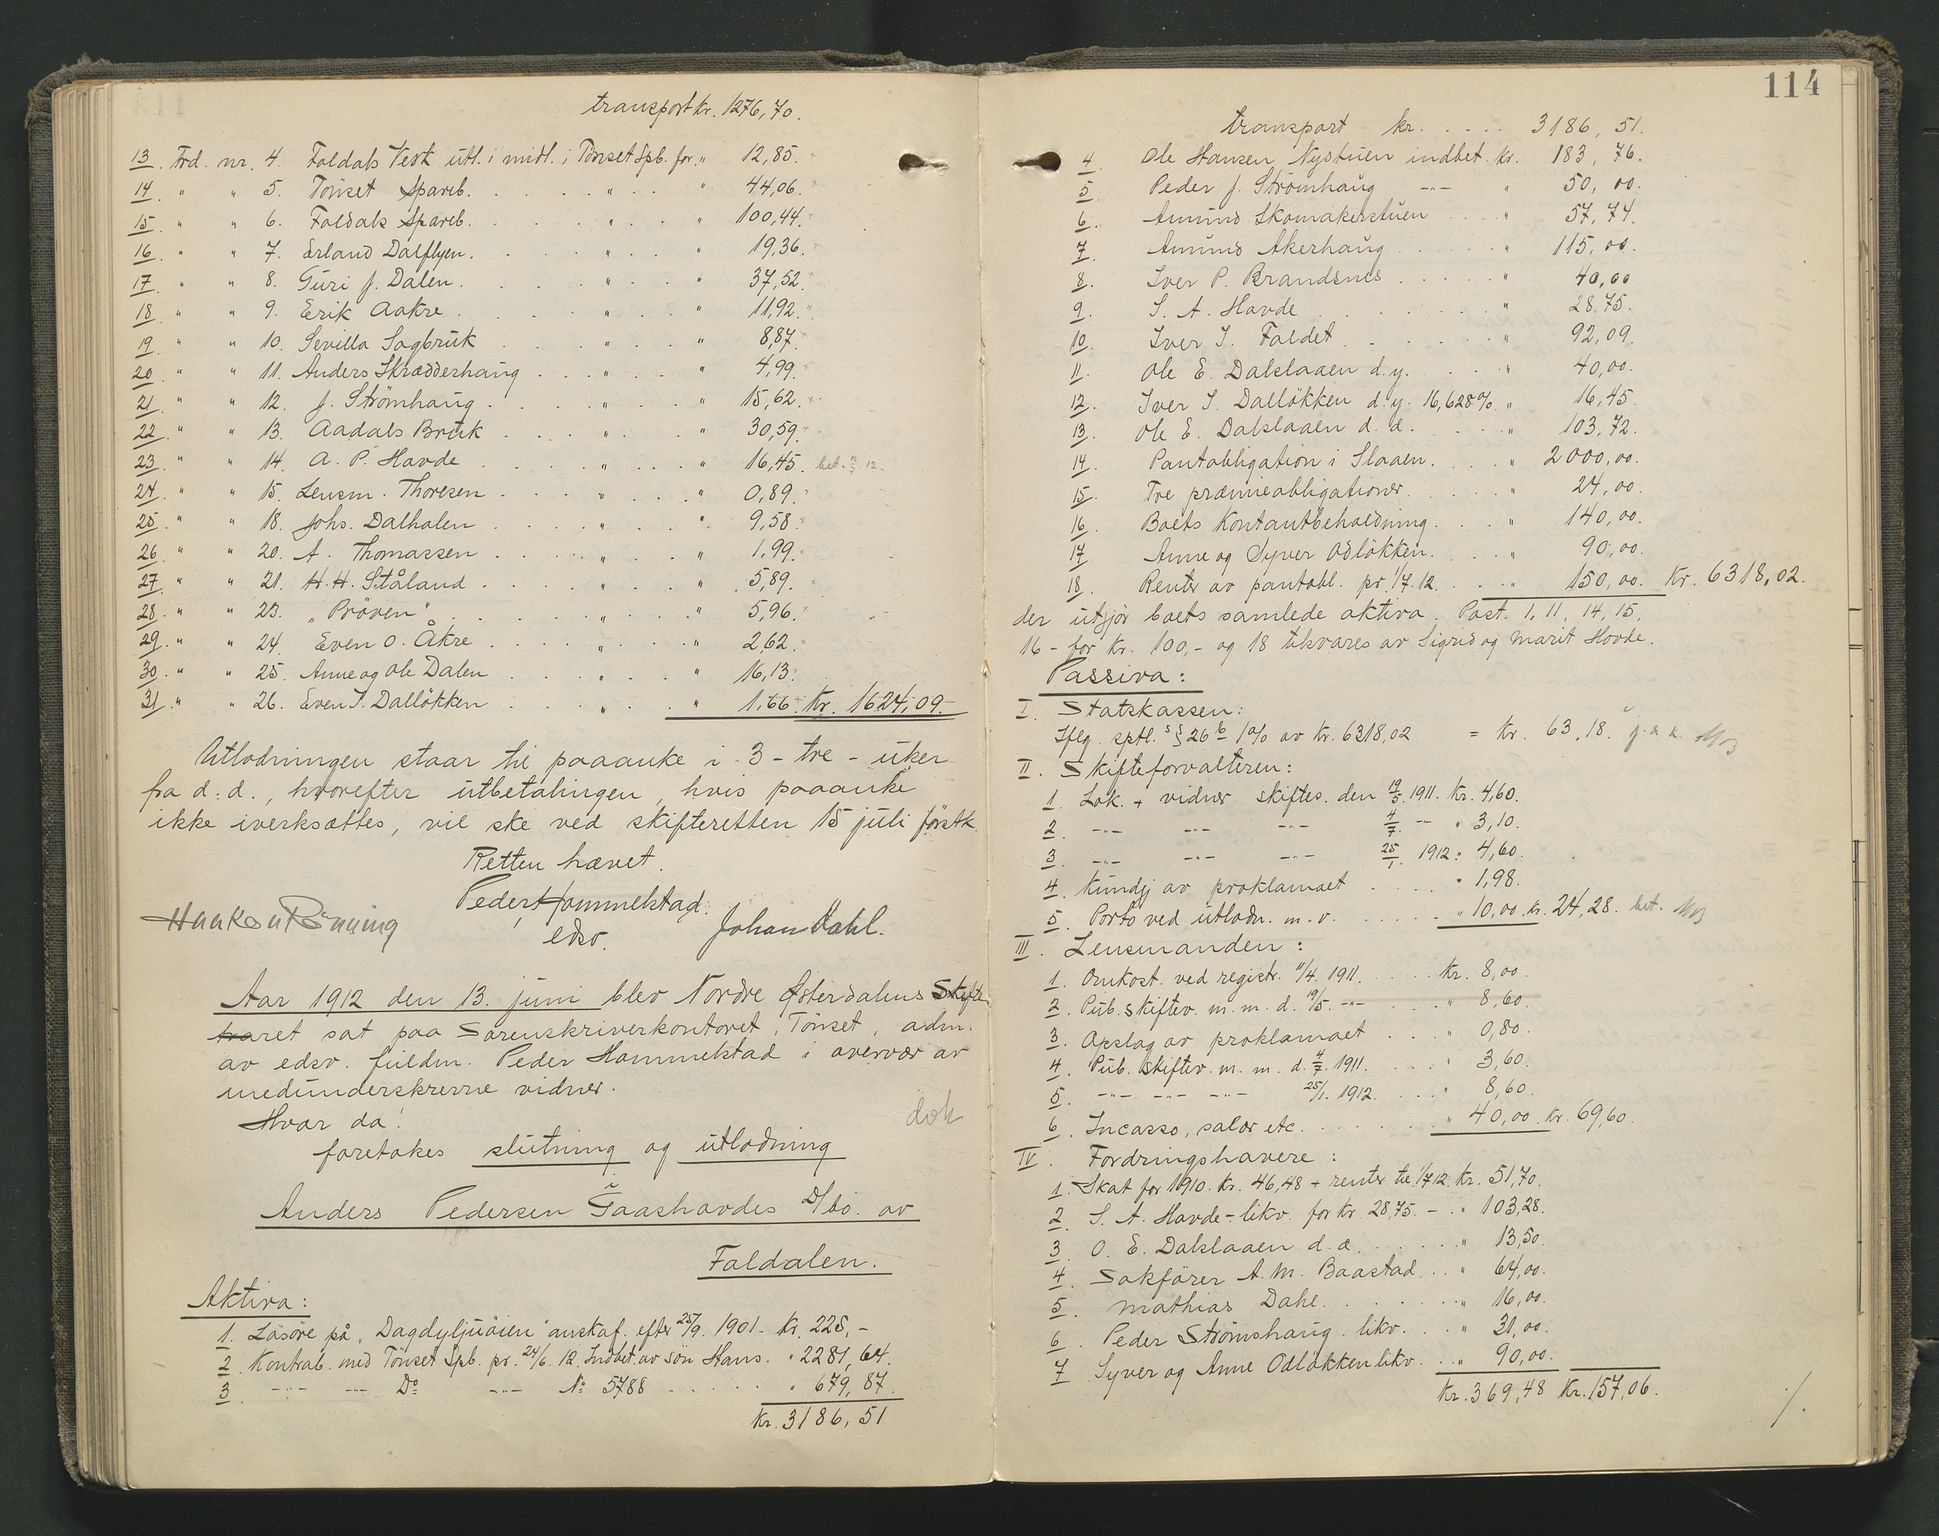 transport kr. 1276,70.
13. Ford. nr. 4. Foldals Vesk utl. i midl. i Tönset Spb. for " 12,85.
14. " " 5. Tönset Spareb. . . . . . " . . " 44,06.
15. " " 6. Foldals Spareb. . . . . . " . . " 100,44.
16. " " 7. Erland Dalflyen. . . . . . " . . " 19,36.
17. " " 8. Guri J. Dalen. . . . . . " . . " 37,52.
18. " " 9. Erik Aakre . . . . . . " . . " 11,92.
19. " " 10. Sevilla Sagbruk . . . . " . . " 8,87.
20. " " 11. Anders Skrædderhaug . . . " . . " 4,99.
21. " " 12. J. Strømhaug . . . . " . . " 15,62.
22. " " 13. Aadals Bruk . . . . " . . " 30,59.
23. " " 14. A. P. Hovde . . . . " . . " 16,45. bet. 12.
24. " " 15. Lensm. Thoresen . . . . " . . " 0,89.
25. " " 18. Johs. Dalhalen . . . . " . . " 9,58.
26. " " 20. A. Thomassen . . . . " . . " 1,99.
27. " " 21. H. H. Ståland . . . . " . . " 5,89.
28. " " 23. "Pröven" . . . . " . . " 5,96.
29. " " 24. Even O. Åkre . . . . " . . " 2,62.
30. " " 25. Anne og Ole Dalen . . . " . . " 16,13.
31. " " 26. Even I. Dallökken . . . " . . " 1,66. Kr. 1624,09.-
Utlodningen staar til paaanke i 3 - tre - uker
fra d. d., hvorefter utbetalingen, hvis paaanke
ikke iverksættes, vil ske ved skifteretten 15 juli førstk.
Retten hævet.
Peder Hommelstad.
edsv.
Haakon Rönning
Johan Dahl.
Aar 1912 den 13. juni blev Nordre Østerdalens Skifte
ret sat paa Sorenskriverkontoret, Tönset, adm.
av edsv. fuldm. Peder Hommelstad i overvær av
medunderskrevne vidner.
Hvor da!
foretokes slutning og utlodning
dok
Anders Pedersen Gaashovdes D/bo. av
Foldalen.
Aktiva:
1. Løsøre på "Dagdyljuöien" anskaf. efter 25/9. 1901. Kr. 225,-
2. Kontrab. med Tönset Spb. pr. 24/6. 12. Indbet. av sön Hans. " 2281,64.
3. -"- -"- Do -"- No 5788 . . . . . " 679,87.
Kr. 3186,51
114
transport kr. . . . . 3186,51.
4. Ole Hansen Nystuen indbet. kr. 183,76.
5. Peder J. Strømhaug -"- " 50,00.
6. Amund Skomakerstuen . . . " 57,74.
7. Amund Akerhaug . . . . " 115,00.
8. Iver P. Brandsnes . . . . " 40,00
9. S. A. Hovde . . . . . . " 28,75.
10. Iver I. Faldet . . . . . " 92,09.
11. Ole E. Dalslaaen d. y. . . . " 40,00.
12. Iver I. Dallökken d. y. 16,628% " 16,45.
13. Ole E. Dalslaaen d. æ. . . . " 103,72.
14. Pantobligation i Slaaen. . . " 2000,00.
15. Tre præmieobligationer. . . . " 24,00.
16. Boets Kontantbeholdning. . . " 140,00.
17. Anne og Syver Odlökken. . . " 90,00.
18. Renter av pantobl. pr. 1/7. 12. . . " 150,00. Kr. 6318,02.
der utgjør boets samlede aktiva. Post. 1, 11, 14, 15,
16 - for kr. 100,- og 18 tilsvares av Sigrid og Marit Hovde.
Passiva:
I. Statskassen:
Iflg. sptl.s § 26 b 1% av kr. 6318,02 = Kr. 63,18.
II. Skifteforvalteren:
1. Lok. + vidner skiftes. den 19/5. 1911. Kr. 4,60.
2. -"- -"- -"- 4/7. -"- " 3,10.
3. -"- -"- -"- 25/1. 1912: " 4,60.
4. Kundgj. av proklamaet . . . . " 1,98.
5. Porto ved utlodn. m. v. . . . . " 10,00. kr. 24,28. bet.
III. Lensmanden:
1. Omkost. ved registr. 11/4. 1911. . . . Kr. 8,00.
2. Pub. skiftev. m. m. d. 19/5. -"- . . . " 8,60.
3. Opslag av proklamaet . . . " 0,80.
4. Pub. skiftev. m. m. d. 4/7. 1911. . . . " 3,60.
5. -"- -"- -"- 25/1. 1912. . . . " 8,60.
6. Incasso, salær etc. . . . . . " 40,00. kr. 69,60.
IV. Fordringshavere:
1. Skat for 1910. Kr. 46,48 + renter til 1/7 12. Kr. 51,70.
2. S. A. Hovde - likv. for kr. 28,75. - . " 103,28.
3. O. E. Dalslaaen d. æ. . . . . " 13,50.
4. Sakfører A. M. Baastad . . . " 64,00.
5. Mathias Dahl. . . . . . " 16,00.
6. Peder Strømshaug. likv. . . . " 31,00.
7. Syver og Anne Odlökken likv. . . " 90,00.
Kr. 369,48 Kr. 157,06.